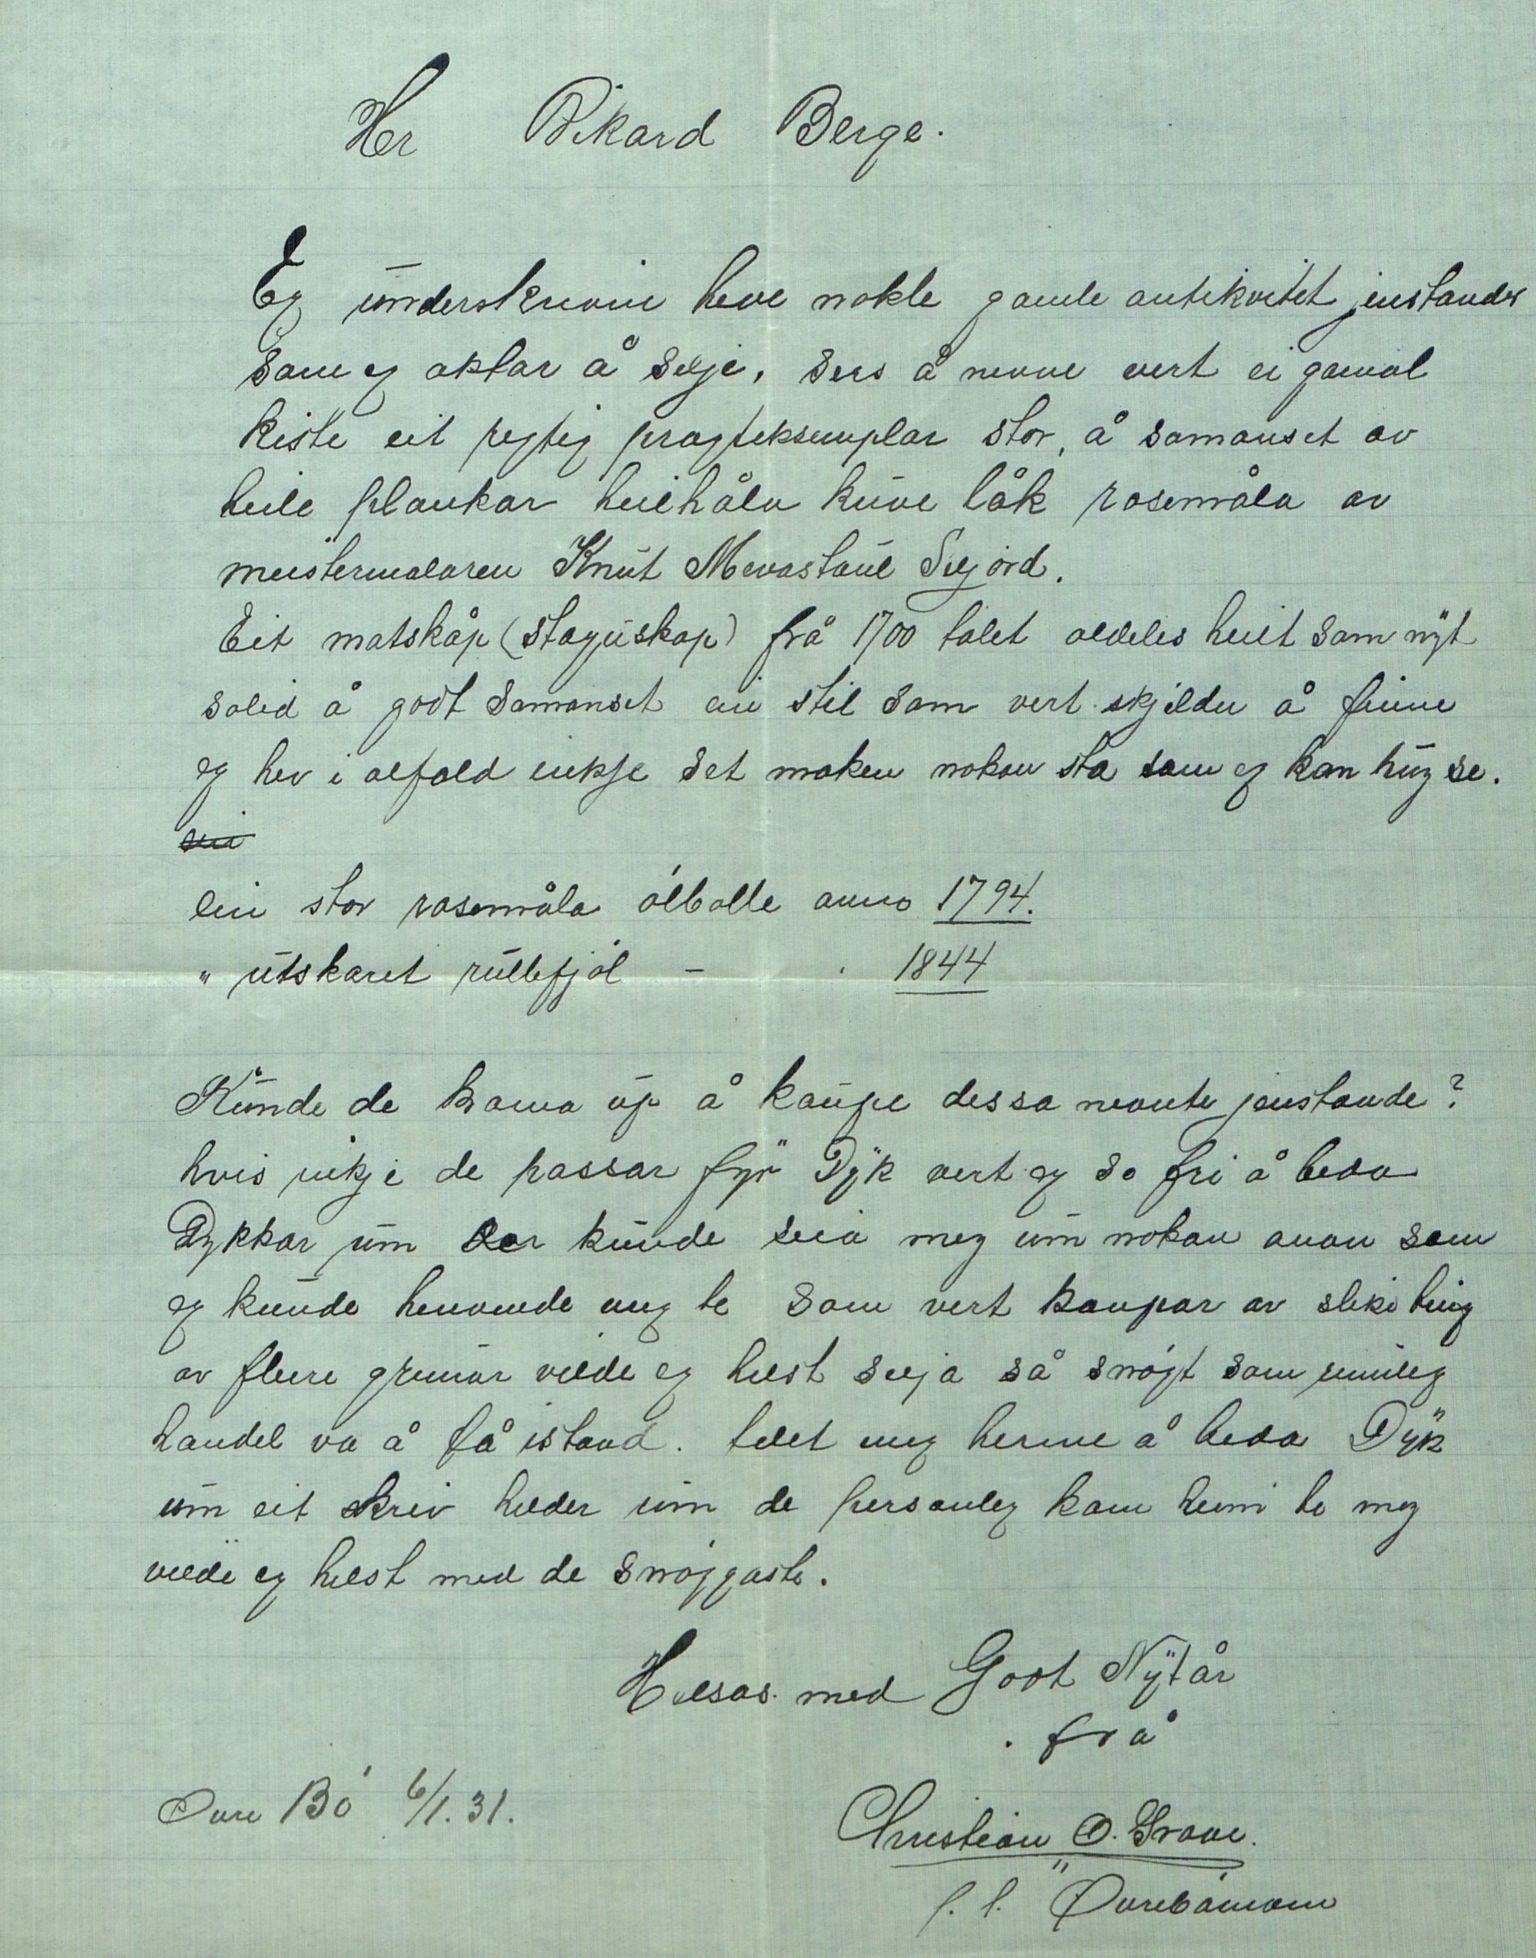 Her Rikard Berge.
Eg underskrivin heve nokle gamle antikvitet jenstander
som eg aktar å selje, sers å nevne vert ei gamal
kiste eit regtig pragteksemplar stor, å samanset av
heile plankar heilhåla kuve låk rosemåla av
meistermalaren Knut Mevastaul Seljord.
Eit matskåp (staguskap) frå 1700 talet aldeles heilt som nyt
solid å godt samanset ein stil som vert skjelden å finne
eg hev i alfald inkje set maken nokon sta som eg kan hugse.
ein stor rosemåla ólbolle anno 1794.
" utskaret rullefjól - 1844
Kunde de koma up å kaupe dessa nevnte jenstande?
hvis inkje de passar fyr Dyk vert eg so fri å beda
Dykkar um der kunde seia meg um nokon anan som
eg kunde henvende meg te som vert kaupar av slike ting
av fleire grunar vilde eg helst selja så snøgt som rimileg
handel va å få istand. tilet meg herme å beda Dyk
um eit skriv helder um de personleg kom heim te meg
vilde eg helst med de snøggaste.
Helsas med Godt Nytår
frå
Øvre Bó 6/1.31.
Christian O. Grave.
p.t. Øvrebómoen